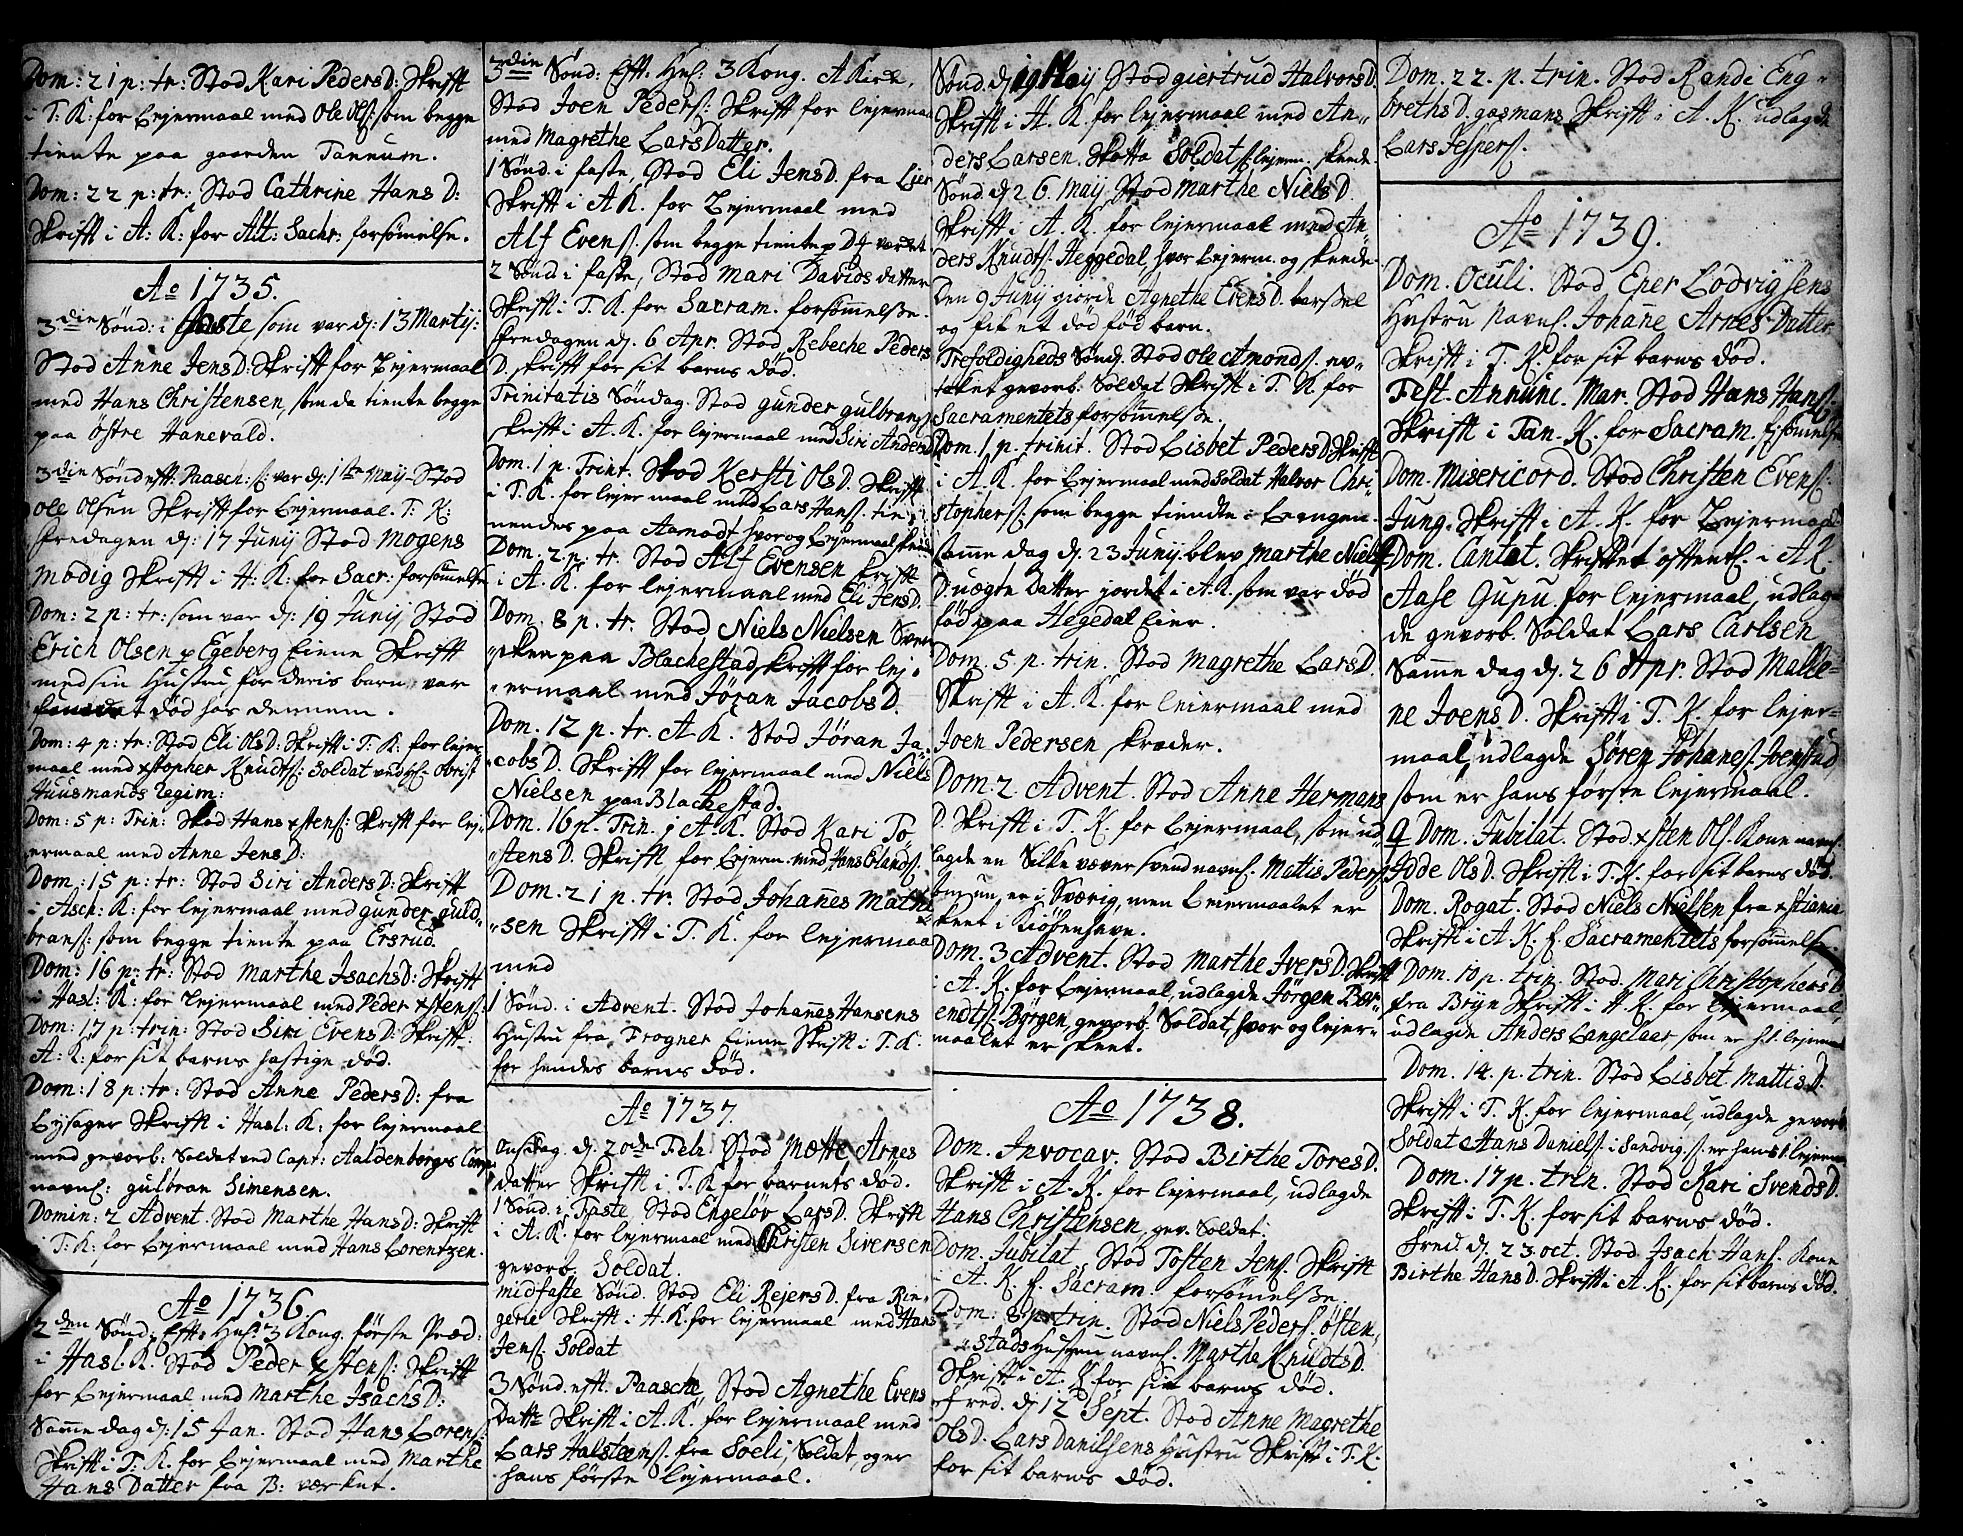 Dom: 21 p: tr: Stod Kari Peders D: Skrift
i T: K: for Lejermaal med Ole Ols: som begge
tiente paa gaarden Tannum.
Dom: 22 p: tr: Stod Cathrine Hans D:
Skrift i A: K: for Alt: Sachr: forsömelse.
Ao 1735.
3die Sønd: i faste som var d: 13 Martij:
Stod Anne Jens D: Skrift for Lejermaal
med Hans Christensen, som da tiente begge
paa østre Hanevald.
3die Sønd eft: Paasch: var d: 1ste Maij Stod
Ole Olsen Skrift for Lejermaal T: K:
Fredagen d: 17 Junij Stod Mogens
Modig Skrift i H: K: for Sacr: forsömelse
Dom: 2 p: tr: som var d: 19 Junij Stod
Erich Olsen p Egeberg Eiene Skrift
med sin Hustru for deris barn var
fundet död hos dennem.
Dom: 4 p: tr: Stod Eli Ols D: Skrift i T: K: for lejer
maal med xstopher Knudts: Soldat ved H: Obrist
Huusmands Regim:
Dom: 5 p: Trin: Stod Hans xstens: Skrift for lej
ermaal med Anne Jens D:
Dom: 15 p: tr: Stod Siri Anders D: Skrift
i Asch: K: for lejermaal med gunder guld
brans: som begge tiente paa Ersrud.
Dom: 16 p: tr: Stod Marthe Isachs D: Skrift
i Hasl: K: for Lejermaal med Peder xstens:
Dom: 17 p: trin: Stod Siri Evens D: Skrift
A: K: for sit barns hastige död.
Dom: 18 p: tr: Stod Anne Peders D: fra
Lysager Skrift i Hasl: K: for lejermaal
med gevorb: Soldat ved Capt: Aaldenborgs Comp
navnl: gulbran Simensen.
Domin: 2 Advent. Stod Marthe Hans D: Skrift
i T: K: for Lejermaal med Hans Lorentzen.
Ao 1736
2den Sønd: Eft: Hel: 3 Kong. första Præd:
i Hasl: K: Stod Peder xstens: Skrift
for Lejermaal med Marthe Isachs D:
Samme dag d: 15 Jan. Stod Hans Lorens:
Skrift i T: K. for Lejermaal med Marthe
Hans Datter fra B: værket.
3die Sønd: Eft. Hel: 3 Kong. A Kirke,
Stod Joen Peders: Skrift for lejermaa
med Magrethe Lars Datter.
1 Sønd. i faste, Stod Eli Jens D. fra Lier
Skrift i A K. for Lejermaal med
Alf Evens: som begge tiente p D4 værket
2 Sønd i faste, Stod Mari Davids datter
Skrift i T. K. for Sacram. forsömmelsse.
Fredagen d. 6 Apr. Stod Rebeche Peders
D. skrift for sit barns död.
Trinitatis Söndag. Stod gunder gulbrans
Skrift i A. K. for lejermaal med Siri Anders D
Dom. 1 p. Trint. Stod Kersti Ols D. Skrift
i T. K. for lejermaal med Lars Hans. tie
nendes paa Aamodt hvor og Lejermaal skeede
Dom. 2 p. tr. Stod Alf Evensen Skrift
i A. K. for lejermaal med Eli Jens D.
Dom. 8 p. tr. Stod Niels Nielsen Sven
sken paa Blachestad, skrift for lej
ermaal med Jöran Jacobs D.
Dom. 12 p. tr. A K. Stod Jöran Ja
cobs D. Skrift for lejermaal med Niels
Nielsen paa Blachestad.
Dom. 16 p. Trin. i A K. Stod Kari To
stens D. Skrift for Lejerm. med Hans Erlands.
Dom. 21 p. tr. Stod Johanes Math
sen Skrift i T. K. for lejermaa
med
1 Sønd. i Advent. Stod Johanes Hansens
Hustru fra Frogner Eiene Skrift i T. K.
for hendes barns död.
Ao 1737.
Onsdag. d. 20de Feb: Stod Mette Arnes
datter Skrift i T. K for barnets död.
1 Sønd. i Faste Stod Engelöv Lars D. Skrift
i A. K. for lejermaal med Christen Siversen
gevorb. Soldat.
midfaste Sønd. Stod Eli Rejers D. fra Rin
gerie Skrift i H. K. for lejermaal med Hans
Jens: Soldat
3 Sønd. eft. Paasche, Stod Agnethe Evens
Datt. Skrift i A. K. for lejermaal med
Lars Halsteens. fra Soeli, Soldat, og er
hans förste lejermaal.
Sønd. d. 19 Maij Stod giertrud Halvors D.
Skrift i H. K for lejermaal med An
ders Larsen Skotta Soldat lejerm. skeede
Sønd. d. 26 Maij Stod Marthe Niels D
Skrift i A. K. for lejermaal med An
ders Knudts. Heggedal, hvor Lejerm. og skeede
Den 9 Junij giorde Agnethe Evens D. barsel
og fik et död föd barn.
Trefoldigheds Sønd. Stod Ole Amonds. ny
gevorb. Soldat Skrift i T. K for
Sacramentets forsömmelsse.
Dom. 1 p. trinit. Stod Lisbet Peders D Skrift
i A K. for Lejermaal med Soldat Halvor Chri
stophers. som begge tiendte i Leangen.
samme dag d. 23 Junij blev Marthe Niels
D. uægte Datter jordet i A.K. som var död
föd paa Hegedal Eier.
Dom. 5 p. trin. Stod Magrethe Lars D.
Skrift i A. K. for leiermaal med
Joen Pedersen skræder.
Dom. 2. Advent. Stod Anne Hermans
D. Skrift i T. K. for Lejermaal, som ud
lagde en Silke væver svend navnl. Mattis Peders.
som nu er i Sværig, men Leiermaalet er
skeet i Kiöbenhavn.
Dom. 3 Advent. Stod Marthe Ivers D. Skrift
i A. K. for Lejermaal, udlagde Jörgen Bær
endts. Börgen, gevorb. Soldat, hvor og lejer
maalet er skeet.
Ao 1738.
Dom. Invocav. Stod Birthe Tores D.
Skrift i A. K. for lejermaal, udlagde
Hans Christensen, gev. Soldat.
Dom. Jubilat, Stod Tosten Jens. Skrift
i A. K. f. Sacram. forsömelsse.
Dom. 8 p. trin. Stod Niels Peders. Östen
stads Hustru navnl. Marthe Knudts D.
Skrift i A. K for sit barns död.
Fred. d. 12 Sept. Stod Anne Magrethe
Ols D. Lars Danielsens Hustru Skrift i T. K.
for sit barns död.
Dom. 22. p. trin. Stod Randi Eng
breths D. gasmans Skrift i A. K. udlagde
Lars Jespers.
Ao 1739.
Dom. Oculi. Stod Eper Lodvigsens
Hustru Navnl. Johane Arnes Datter
Skrift i T. K for sit barns död.
Fest. Annunc. Mar. Stod Hans Hans.
Skrift i Tan. K. for Sacram. forsömelse
Dom. Misericord. Stod Christen Evens.
Jung. Skrift i A. K. for Lejermaal
Dom. Cantat. Skriftet offentl. i A K.
Aase Gupu for lejermaal, udlag
de gevorb. Soldat Lars Carlsen
Samme dag d. 26 Apr. Stod Malle
ne Joens D. Skrift i T. K. for lejer
maal, udlagde Sören Johanes. Joenstad
som er hans förste lejermaal.
Dom. Jubilat. Stod xsten Ols. Kone navnl.
Jdde Ols D. Skrift i T. K. for sit barns död.
Dom. Rogat. Stod Niels Nielsen fra xstiania
Skrift i A K. f. Sacramentets forsömmelse.
Dom. 10 p. trin. Stod. Mari Christophers D
fra Bryn Skrift i H. K. for Lejermaal,
udlagde Anders Langelaar, som er h.l. lejerm
Dom. 14. p. trin. Stod Lisbet Mattis D
Skrift i T. K. for lejermaal, udlagde gevorb
Soldat Hans Daniels. i Sandvig. er hans 1 lejerm
Dom. 17 p. trin. Stod Kari Svends D.
Skrift i T. K. for sit barns död.
Fred. d. 23. oct. Stod Isach Hans. Kone
Birthe Hans D. Skrift i A K. for sit barns död.